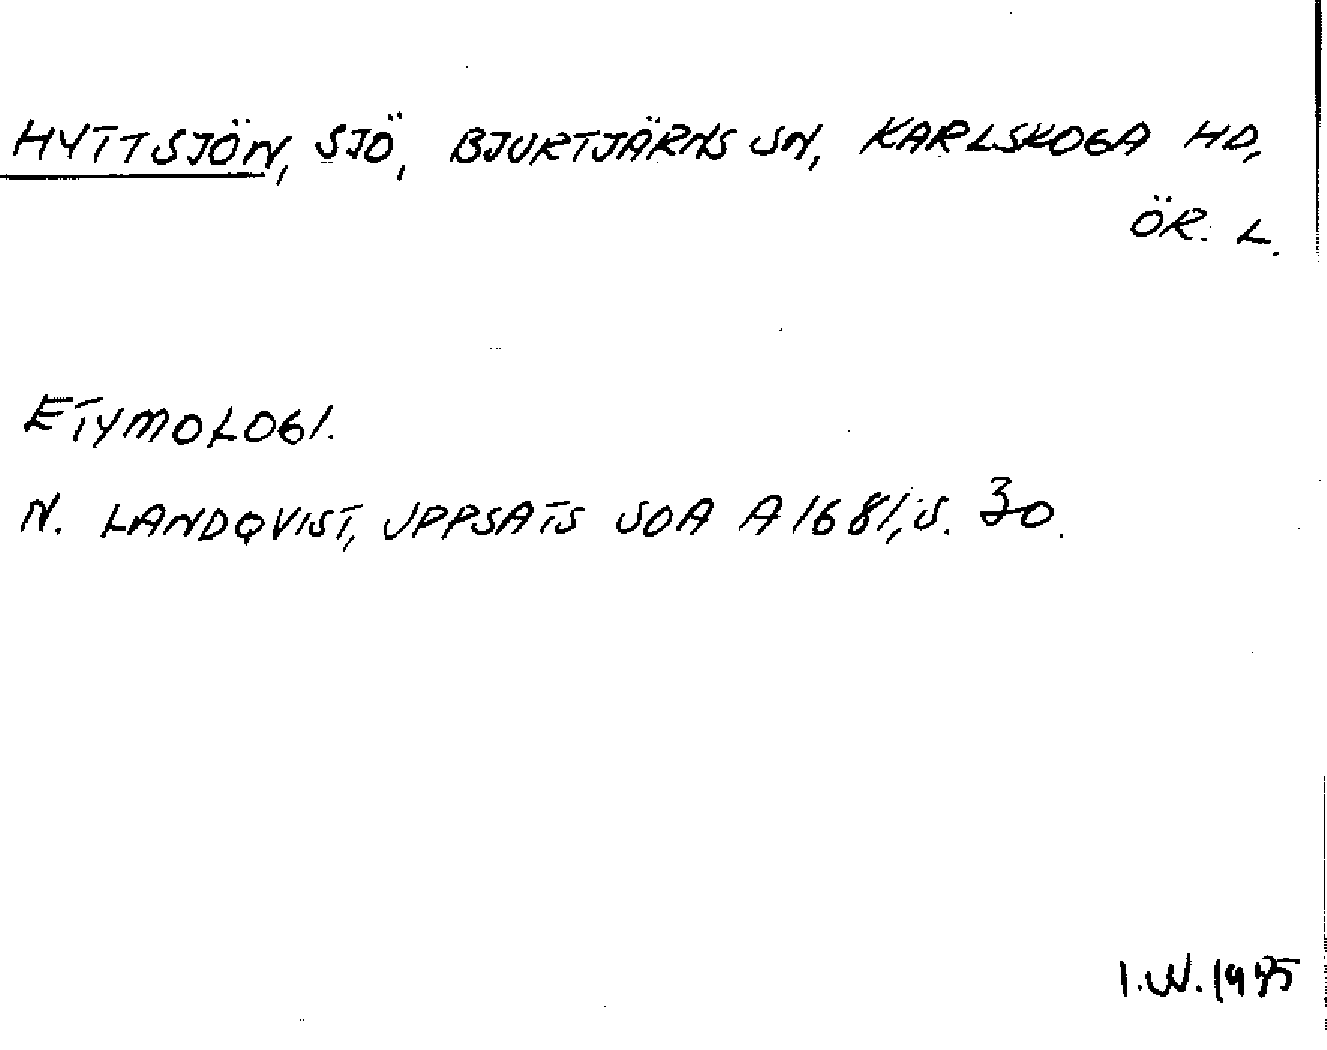 HYTTSJÖN, SJÖ, BJURTJÄRNS SN, KARLSKOGA HD,
ÖR. L.
ETYMOLOGI.
N. LANDQVIST, UPPSATS SOA A 1681, S. 30.
I.W. 1975